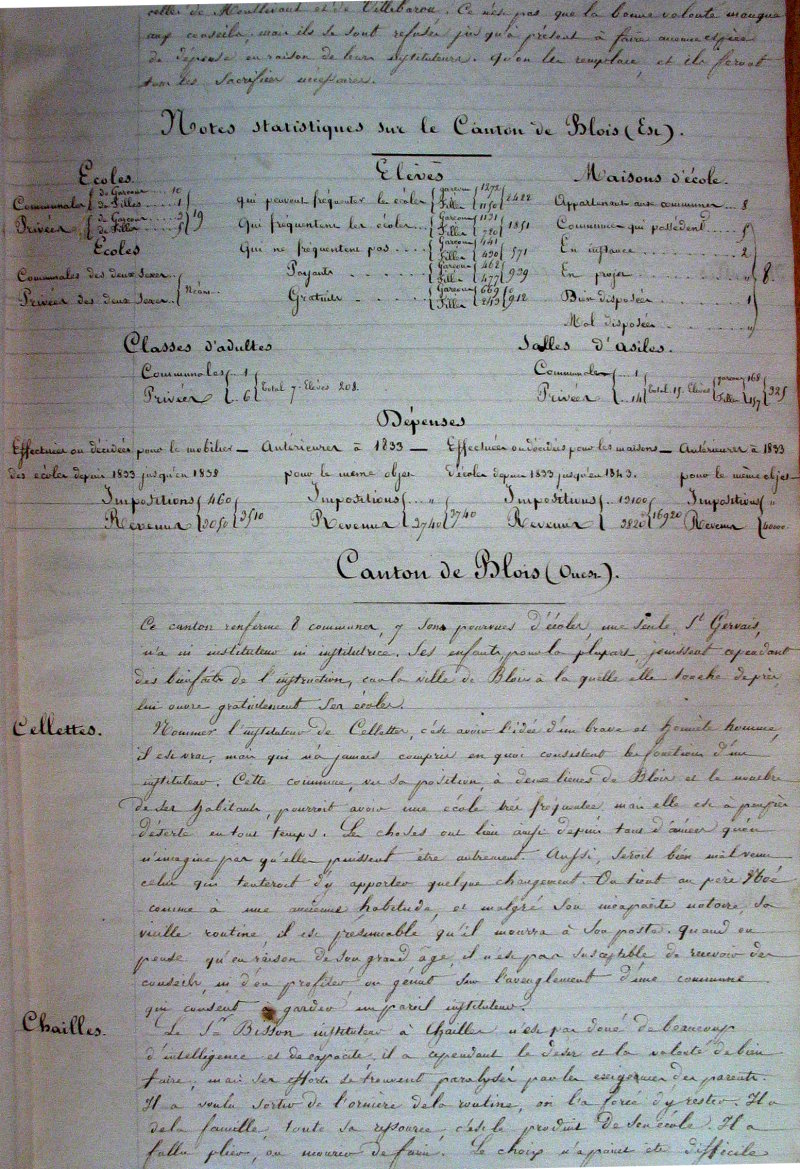 celles de Montlivaut et de Villebarou. Ce n'est pas que la bonne volonté manque
aux conseils, mais ils se sont refusés jusqu'à présent à faire aucune espèce
de dépense en raison de leurs instituteurs. qu'on les remplace, et ils feront
tous les sacrifices nécessaires.
Notes statistiques sur le Canton de Blois (Est).
Ecoles
Communales { de Garçons ... 10
de Filles ... 1
Privées { de Garçons ... 3
de Filles ... 5 } 19
Ecoles
Communales des deux sexes..
Privées des deux sexes.. } Néant
Elèves
qui peuvent fréquenter les écoles { garçons 1272
Filles 1150 } 2422
Qui fréquentent les écoles.... { Garçons 1131
Filles 720 } 1851
Qui ne fréquentent pas .... { Garçons 141
Filles 430 } 571
Payants . . . . . { Garçons 462
Filles 477 } 939
Gratuits . . . . . { Garçons 669
Filles 243 } 912
Maisons d'école.
Appartenant aux communes ... 8
Communes qui possèdent ... 5
En instance ... 2
En projet ... "
Bien disposées ... 1
Mal disposées ... " } 8.
Classes d'adultes
Communales {.. 1
Privées {.. 6 } total 7. Elèves 208.
Salles d'Asiles.
Communales {... 1
Privées {.. 14 } total 15. Elèves { garçons 168
Filles 157 } 325
Dépenses
Effectuées ou décidées pour le mobilier — Antérieures à 1833 — Effectuées ou décidées pour les maisons — Antérieures à 1833
des écoles depuis 1833 jusqu'en 1838 pour le même objet d'école depuis 1833 jusqu'en 1843. pour le même objet
Impositions { 460 Impositions {... " Impositions {.. 13100 Impositions { "
Revenus { 3050 } 3510 Revenus { 3740 } 3740 Revenus { 3820 } 16920 Revenus { 40000
Canton de Blois (Ouest).
Ce canton renferme 8 communes, 7 sont pourvues d'écoles, une seule, St Gervais,
n'a ni instituteur ni institutrice. Ses enfants, pour la plupart, jouissent cependant
des bienfaits de l'instruction, car la ville de Blois à la quelle elle touche de près,
lui ouvre gratuitement ses écoles.
Cellettes.
Nommer l'instituteur de Cellettes, c'est avoir l'idée d'un brave et honnête homme,
il est vrai, mais qui n'a jamais compris en quoi consistent les fonctions d'un
instituteur. Cette commune, vu sa position, à deux lieues de Blois et le nombre
de ses habitants, pourroit avoir une école très fréquentée mais elle est à peu près
déserte en tout temps. Les choses ont lieu ainsi depuis tant d'années qu'on
n'imagine pas qu'elles puissent être autrement. Aussi, seroit bien mal venu
celui qui tenteroit d'y apporter quelque changement. On tient au père Noé
comme à une ancienne habitude, et malgré son incapacité notoire, sa
vieille routine il est présumable qu'il mourra à son poste. Quand on
pense qu'en raison de son grand âge, il n'est pas susceptible de recevoir des
conseils, ni d'en profiter on gémit sur l'aveuglement d'une commune
qui consent à garder un pareil instituteur.
Chailles.
Le Sr Bisson instituteur à Chailles n'est pas doué de beaucoup
d'intelligence et de capacité, il a cependant le désir et la volonté de bien
faire, mais ses efforts se trouvent paralysés par les exigences des parents.
Il a voulu sortir de l'ornière de la routine, on l'a forcé d'y rester. Il a
de la famille, toute sa ressource, c'est le produit de son école. Il a
fallu plier, ou mourir de faim. Le choix n'a point été difficile